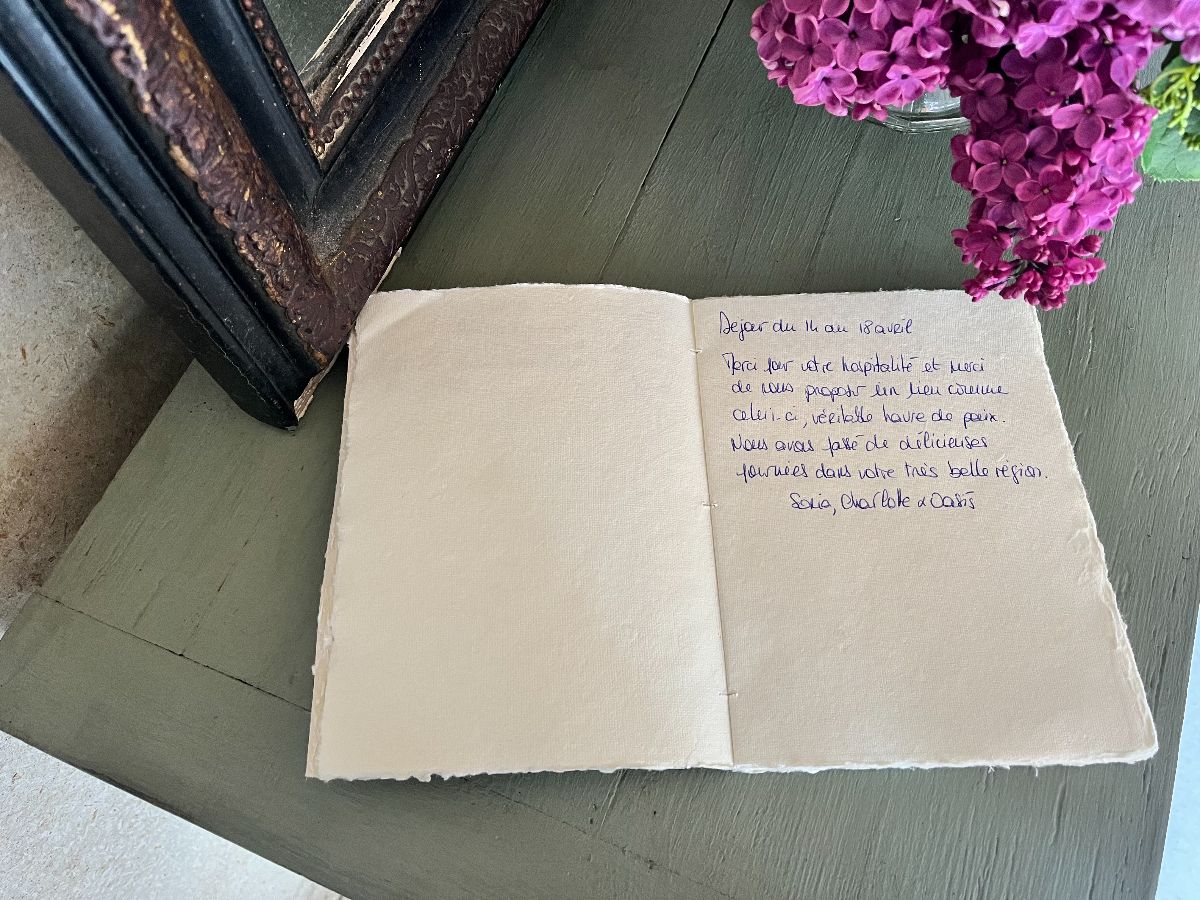 Séjour du 14 au 18 avril
Merci pour votre hospitalité et merci
de nous proposer un lieu comme
celui-ci, véritable havre de paix.
Nous avons passé de délicieuses
journées dans votre très belle région.
Sonia, Charlotte & Oasis